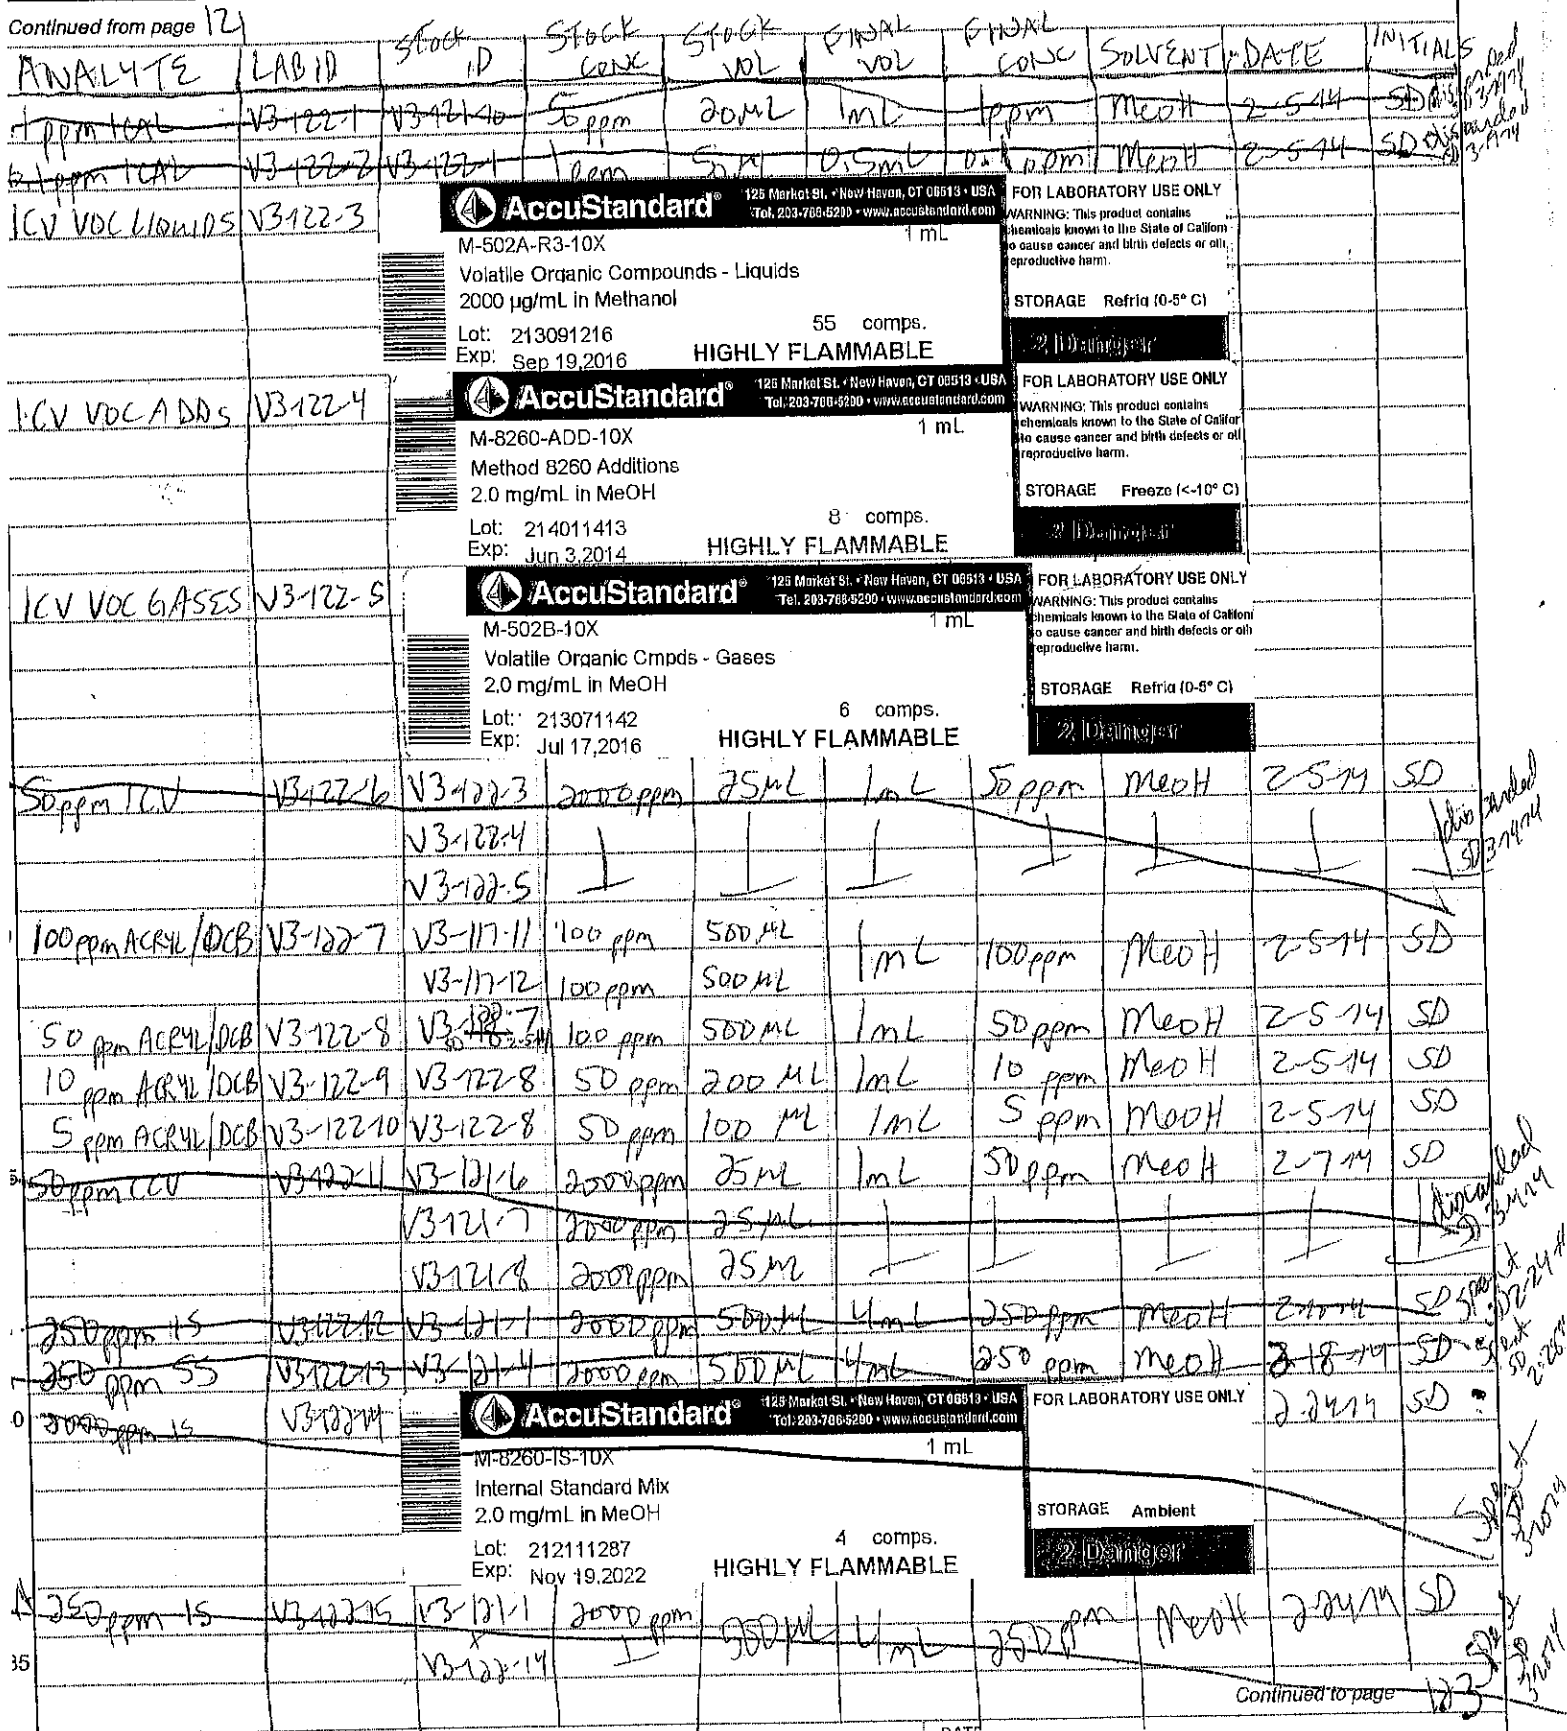 Continued from page 121
ANALYTE LAB ID STOCK ID STOCK CONC STOCK VOL FINAL VOL FINAL CONC SOLVENT DATE INITIALS
1 ppm ICAL V3-122-1 V3-121-10 50 ppm 20 µL 1mL 1ppm MeOH 2-5-14 SD discarded
0.1 ppm ICAL V3-122-2 V3-122-1 1ppm 0.5mL 0.1 ppm MeOH 2-5-14 SD discarded
ICV VOC LIQUIDS V3-122-3
AccuStandard® 125 Market St. • New Haven, CT 06513 • USA
Tel. 203-786-5290 • www.accustandard.com
M-502A-R3-10X 1 mL
Volatile Organic Compounds - Liquids
2000 µg/mL in Methanol
Lot: 213091216 55 comps.
Exp: Sep 19,2016 HIGHLY FLAMMABLE
FOR LABORATORY USE ONLY
WARNING: This product contains
chemicals known to the State of Californ
to cause cancer and birth defects or oth
reproductive harm.
STORAGE Refrig (0-5° C)
2 Danger
ICV VOC ADDs V3-122-4
AccuStandard® 125 Market St. • New Haven, CT 06513 • USA
Tel. 203-786-5290 • www.accustandard.com
M-8260-ADD-10X 1 mL
Method 8260 Additions
2.0 mg/mL in MeOH
Lot: 214011413 8 comps.
Exp: Jun 3,2014 HIGHLY FLAMMABLE
FOR LABORATORY USE ONLY
WARNING: This product contains
chemicals known to the State of Califor
to cause cancer and birth defects or otl
reproductive harm.
STORAGE Freeze (<-10° C)
2 Danger
ICV VOC GASES V3-122-5
AccuStandard® 125 Market St. • New Haven, CT 06513 • USA
Tel. 203-786-5290 • www.accustandard.com
M-502B-10X 1 mL
Volatile Organic Cmpds - Gases
2.0 mg/mL in MeOH
Lot: 213071142 6 comps.
Exp: Jul 17,2016 HIGHLY FLAMMABLE
FOR LABORATORY USE ONLY
WARNING: This product contains
chemicals known to the State of Californi
to cause cancer and birth defects or oth
reproductive harm.
STORAGE Refrig (0-5° C)
2 Danger
50 ppm ICV V3-122-6 V3-122-3 2000 ppm 25 µL 1mL 50 ppm MeOH 2-5-14 SD
V3-122-4 discarded
V3-122-5 SD 3-14-14
100 ppm ACRYL/DCB V3-122-7 V3-117-11 100 ppm 500 µL 1mL 100 ppm MeOH 2-5-14 SD
V3-117-12 100 ppm 500 µL
50 ppm ACRYL/DCB V3-122-8 V3-122-7 100 ppm 500 µL 1mL 50 ppm MeOH 2-5-14 SD
10 ppm ACRYL/DCB V3-122-9 V3-122-8 50 ppm 200 µL 1mL 10 ppm MeOH 2-5-14 SD
5 ppm ACRYL/DCB V3-122-10 V3-122-8 50 ppm 100 µL 1mL 5 ppm MeOH 2-5-14 SD
50 ppm CCV V3-122-11 V3-121-6 2000 ppm 25 µL 1mL 50 ppm MeOH 2-7-14 SD
V3-121-7 2000 ppm 25 µL discarded
V3-121-8 2000 ppm 25 µL
250 ppm IS V3-122-12 V3-121-1 2000 ppm 500 µL 4mL 250 ppm MeOH 2-10-14 SD spent SD 2-24-14
250 ppm SS V3-122-13 V3-121-4 2000 ppm 500 µL 4mL 250 ppm MeOH 2-18-14 SD spent
2000 ppm IS V3-122-14 2-24-14 SD
AccuStandard® 125 Market St. • New Haven, CT 06513 • USA
Tel. 203-786-5290 • www.accustandard.com
M-8260-IS-10X 1 mL
Internal Standard Mix
2.0 mg/mL in MeOH
Lot: 212111287 4 comps.
Exp: Nov 19,2022 HIGHLY FLAMMABLE
FOR LABORATORY USE ONLY
STORAGE Ambient
2 Danger
Spent
250 ppm IS V3-122-15 V3-121-1 2000 ppm 500 µL 4mL 250 ppm MeOH 2-24-14 SD
V3-122-14
35
Continued to page 123